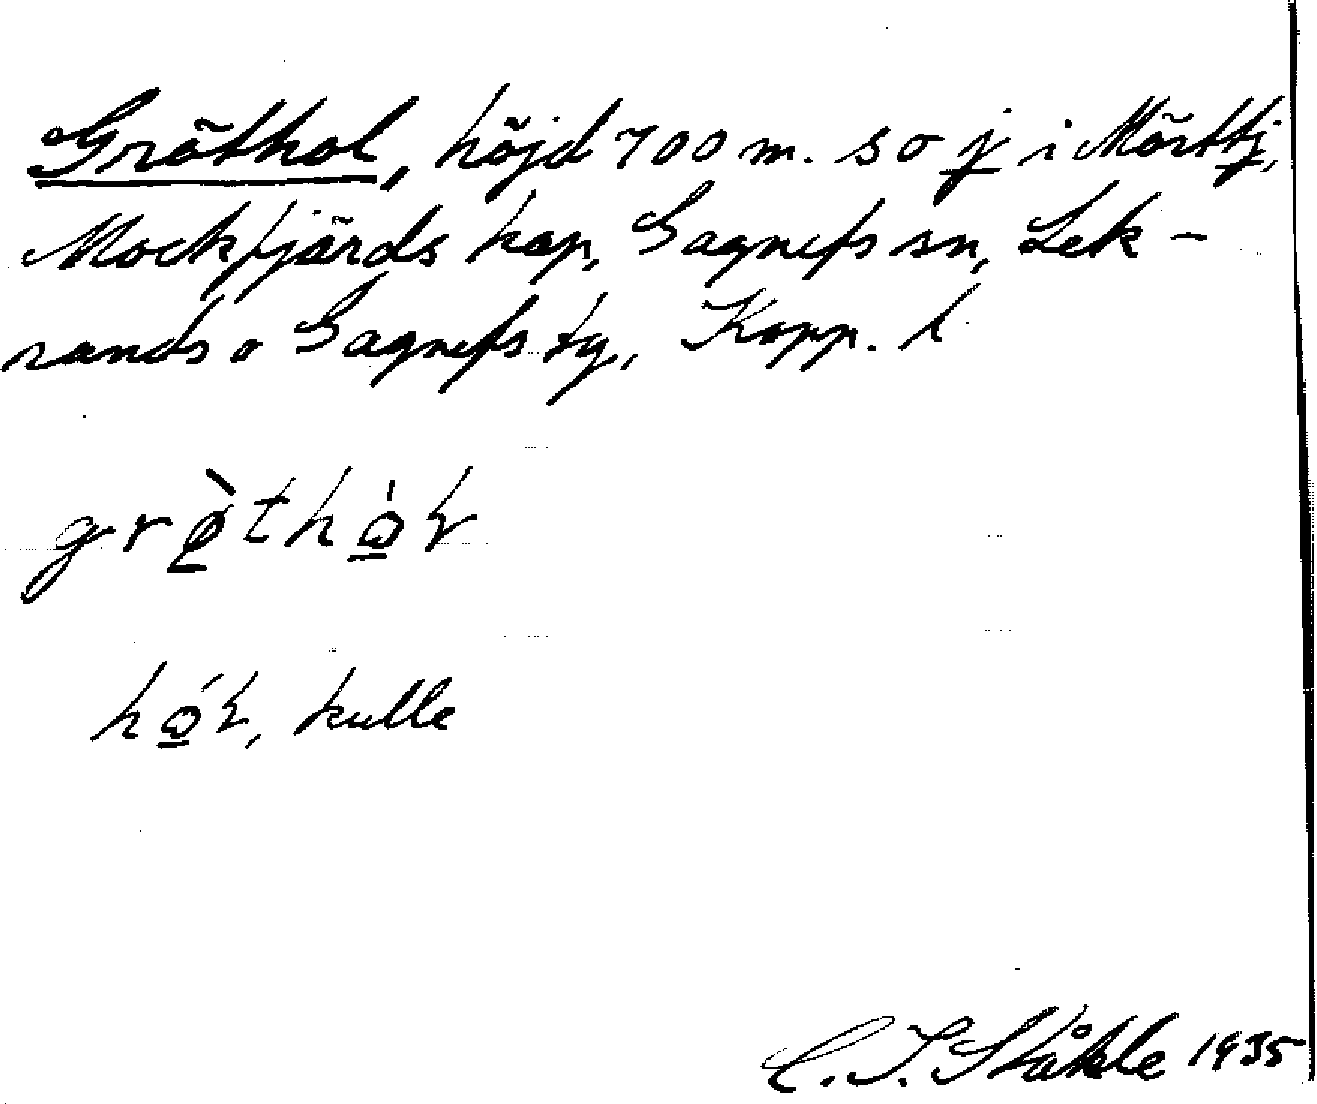 Gröthol, höjd 700 m. s o j i Mörttj,
Mockfjärds kap, Gagnefs sn, Lek-
rands o Gagnefs tg., Kopp. l
hol, kulle
C. I. Ståhle 1935